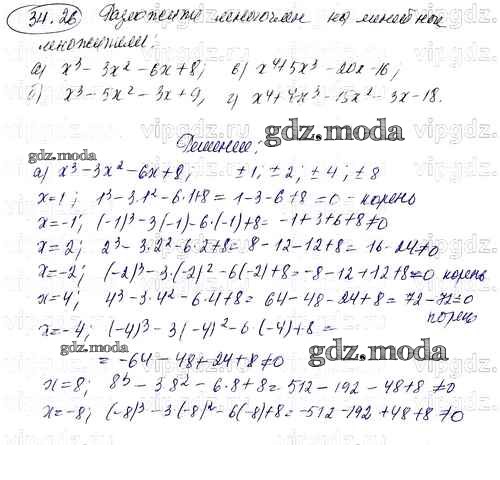 34.26 Разложите многочлен на линейные
множители:
а) x³ - 3x² - 6x + 8; в) x⁴ + 5x³ - 20x - 16;
б) x³ - 5x² - 3x + 9, г) x⁴ + 4x³ - 15x² - 3x - 18.
Решение:
gdz.moda
а) x³ - 3x² - 6x + 8; ± 1; ± 2; ± 4; ± 8
x = 1; 1³ - 3·1² - 6·1 + 8 = 1 - 3 - 6 + 8 = 0 - корень
x = -1; (-1)³ - 3(-1) - 6·(-1) + 8 = -1 + 3 + 6 + 8 ≠ 0
x = 2; 2³ - 3·2² - 6·2 + 8 = 8 - 12 - 12 + 8 = 16 - 24 ≠ 0
x = -2; (-2)³ - 3·(-2)² - 6(-2) + 8 = -8 - 12 + 12 + 8 = 0 корень
x = 4; 4³ - 3·4² - 6·4 + 8 = 64 - 48 - 24 + 8 = 72 - 72 = 0
корень
x = -4; (-4)³ - 3(-4)² - 6·(-4) + 8 =
gdz.moda
= -64 - 48 + 24 + 8 ≠ 0
gdz.moda
x = 8; 8³ - 3·8² - 6·8 + 8 = 512 - 192 - 48 + 8 ≠ 0
x = -8; (-8)³ - 3·(-8)² - 6(-8) + 8 = -512 - 192 + 48 + 8 ≠ 0